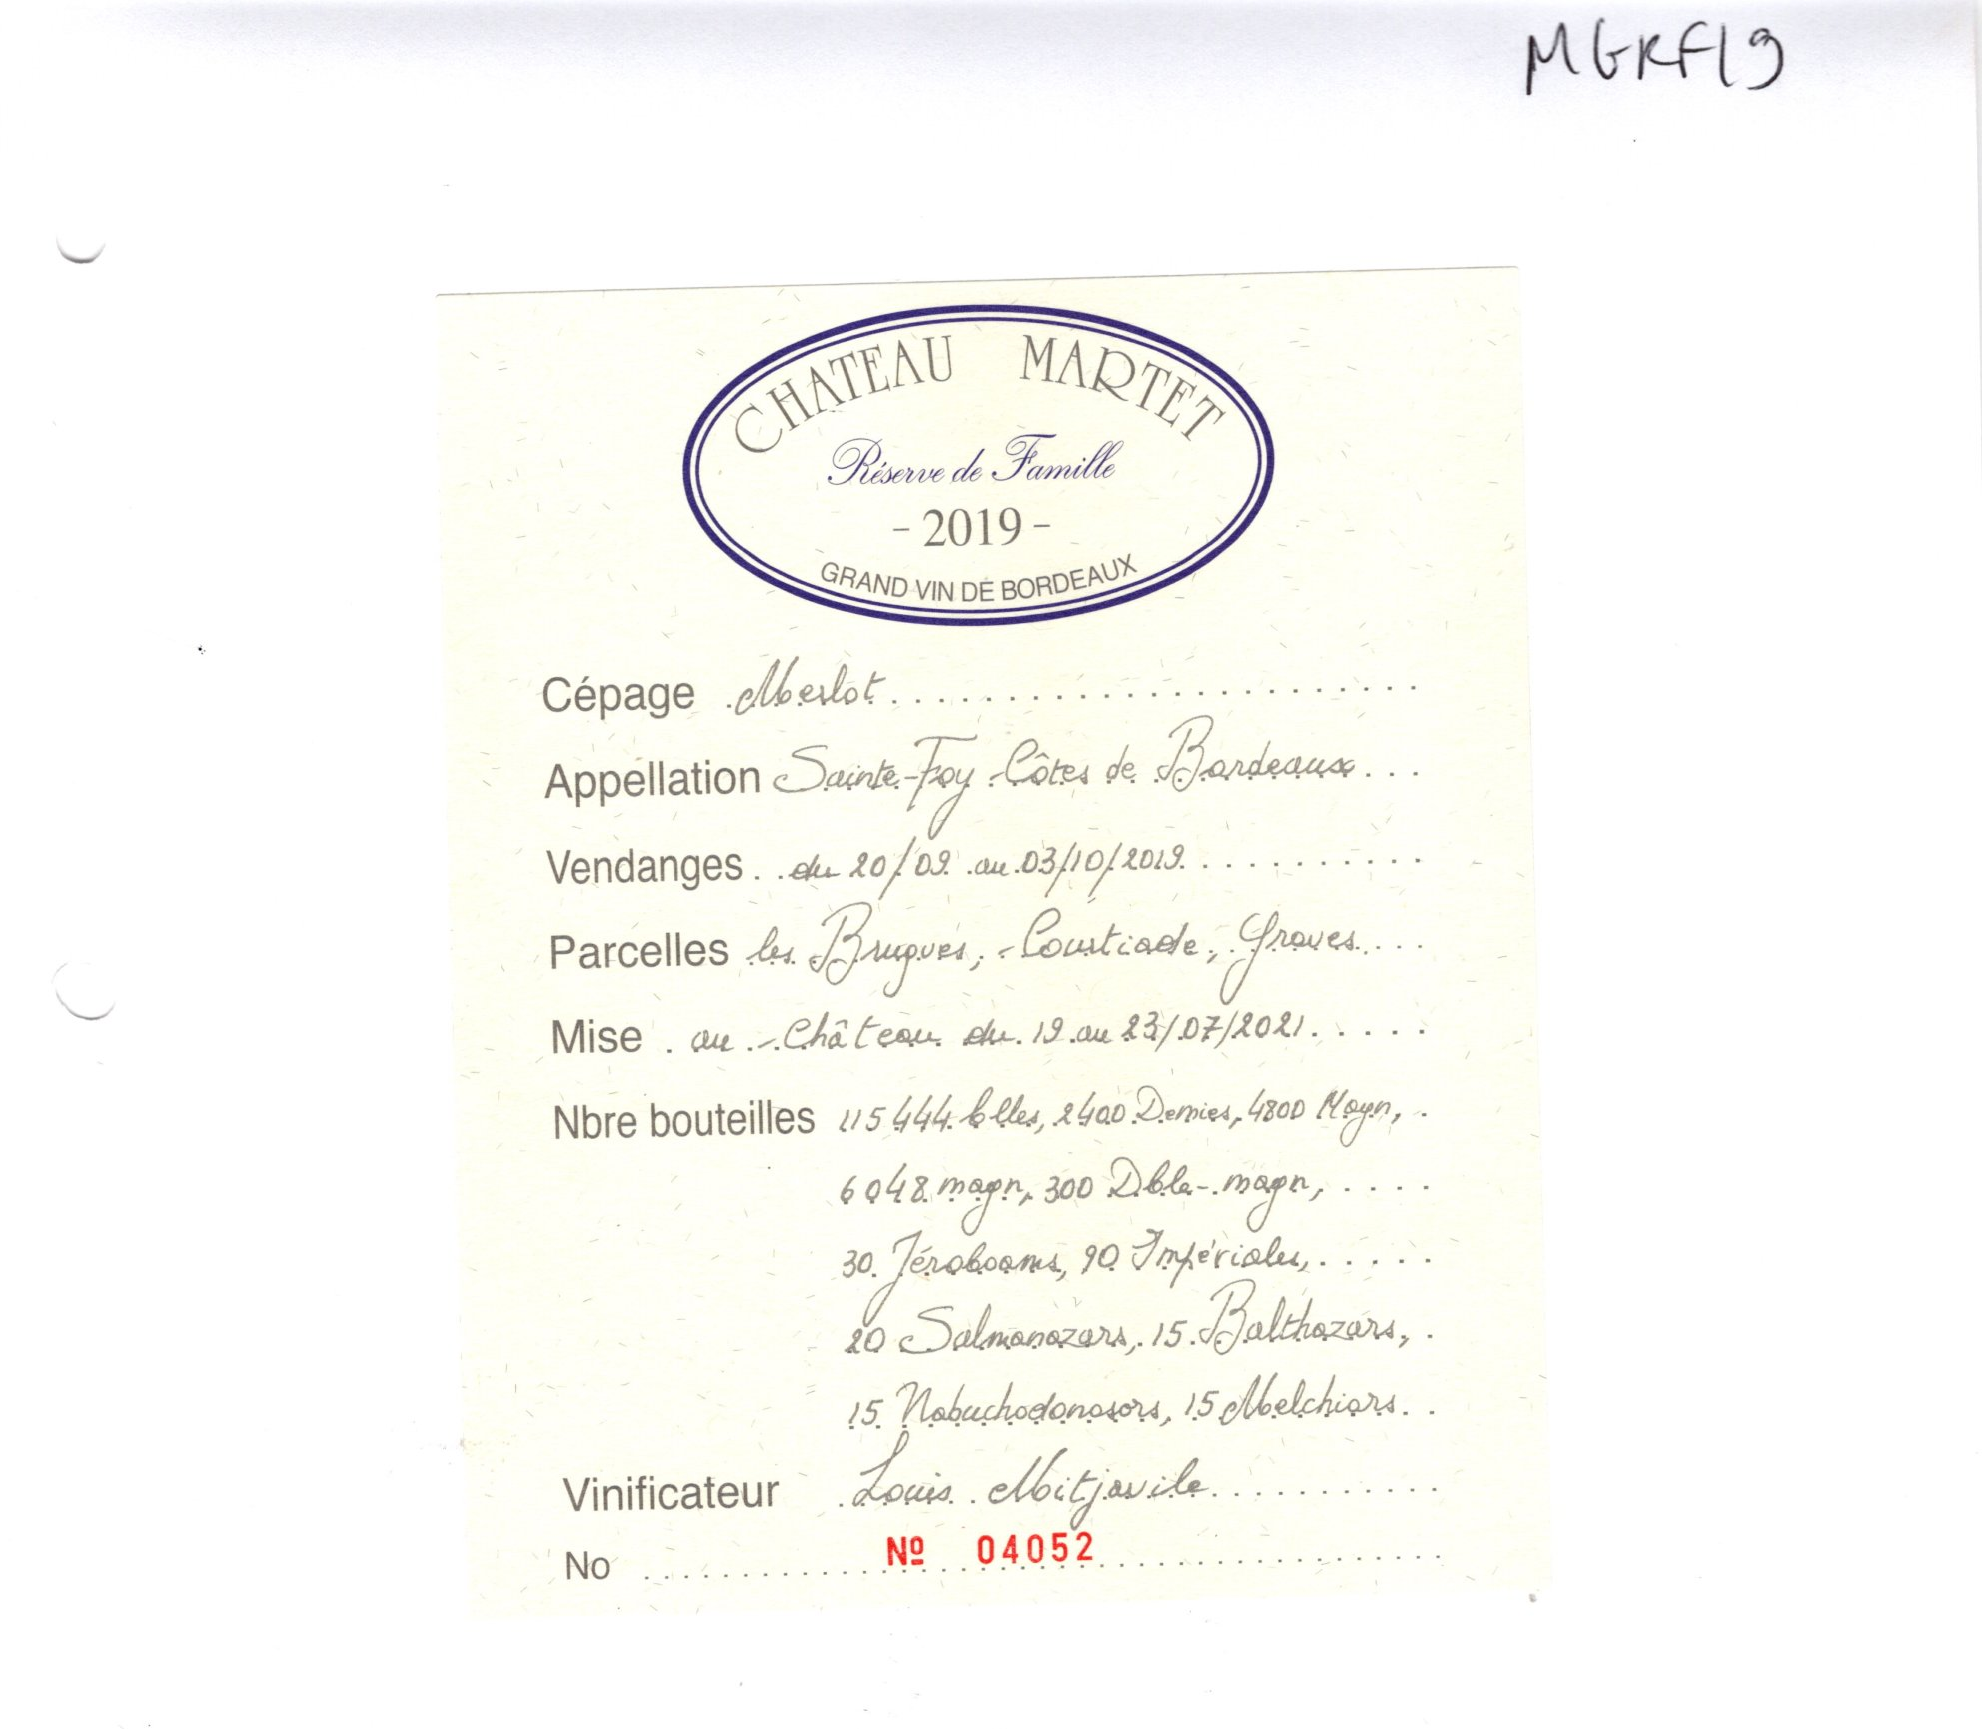 MGRF19
CHATEAU MARTET
Réserve de Famille
- 2019 -
GRAND VIN DE BORDEAUX
Cépage Merlot
Appellation Sainte-Foy Côtes de Bordeaux
Vendanges du 20/09 au 03/10/2019
Parcelles les Brugues, Coustiade, Graves
Mise au Château du 19 au 23/07/2021
Nbre bouteilles 115 444 blles, 2400 Demies, 4800 Magn,
6048 magn, 300 Dble-magn,
30 Jéroboams, 90 Impériales,
20 Salmanazars, 15 Balthazars,
15 Nabuchodonosors, 15 Melchiors
Vinificateur Louis Mitjavile
No Nº 04052